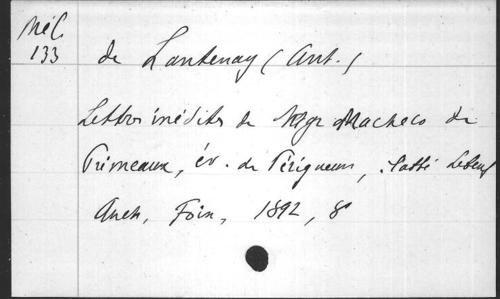 Méc
133
de Lantenay (Ant.)
Lettres inédites de Mgr Macheco de
Prémeaux, év. de Périgueux, l'abbé Lebeuf
Auch, Foix, 1892, 8°